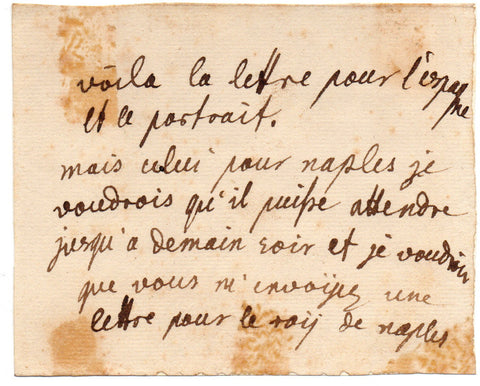 voila la lettre pour l'espagne
et le portrait.
mais celui pour naples je
voudrois qu'il puisse attendre
jusqu'a demain soir et je voudrois
que vous m'envoÿez une
lettre pour le roÿ de naples